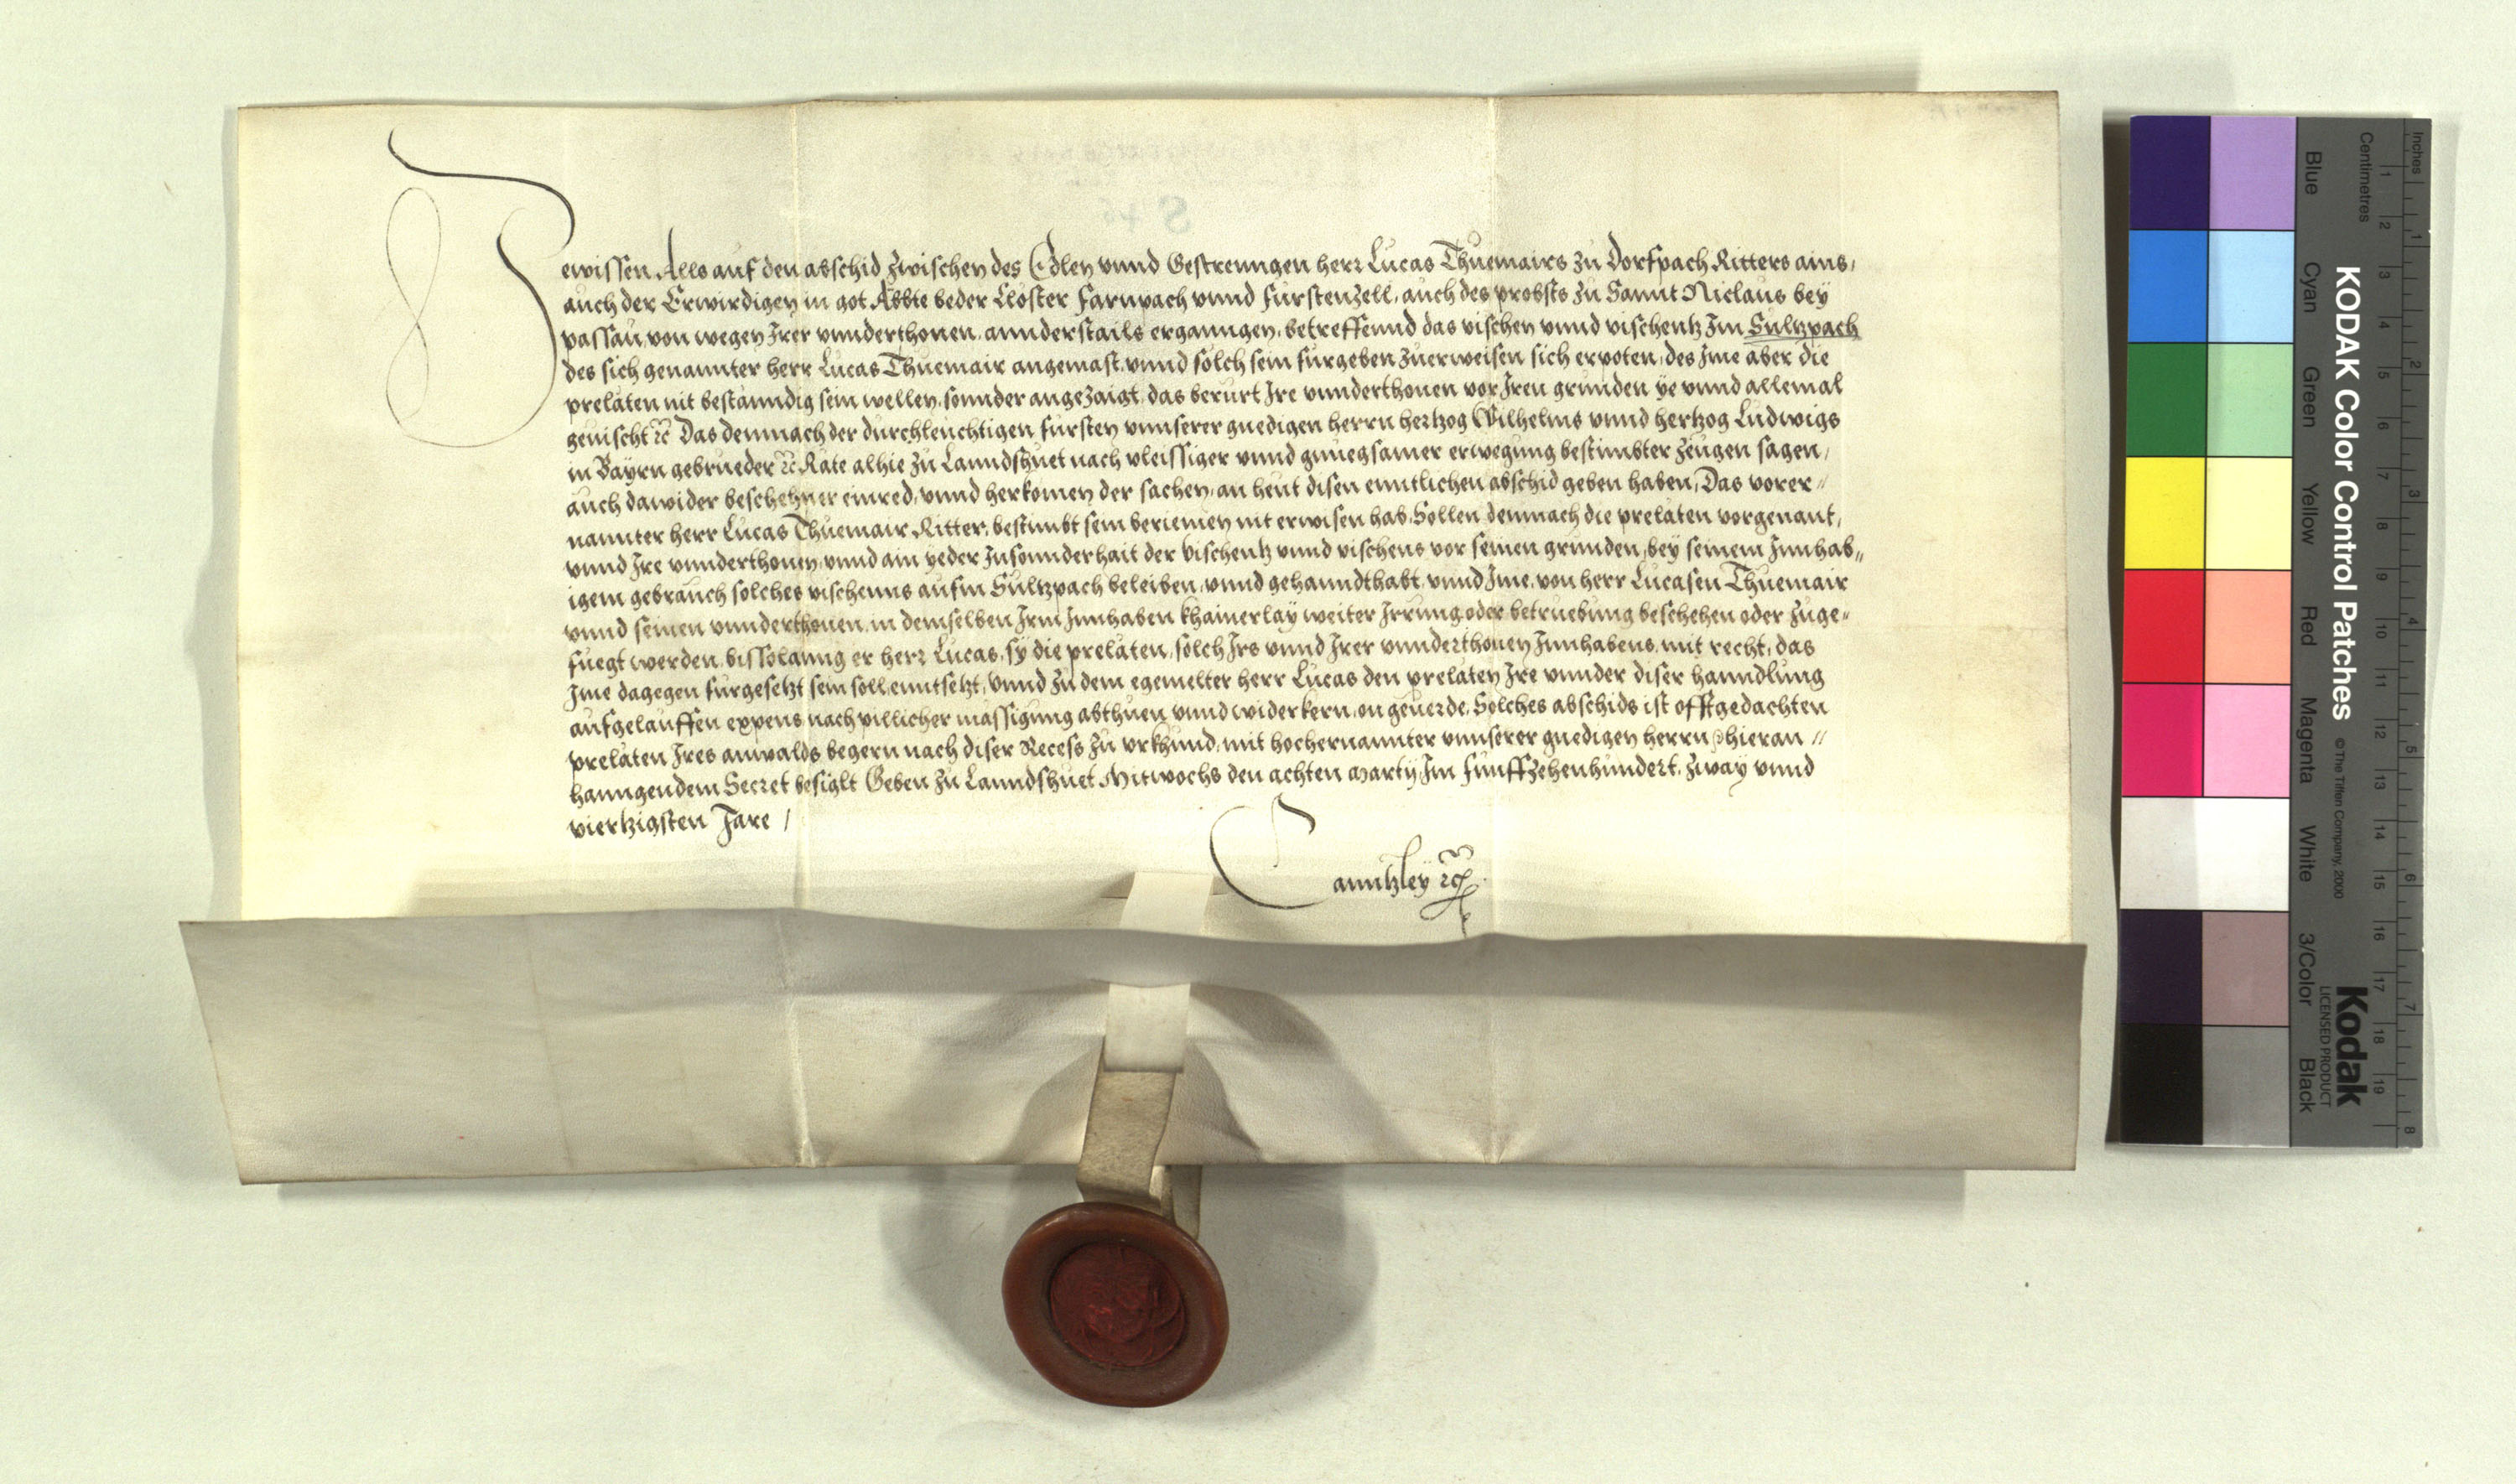 Zewissen Alls auf den abschid zwischen des Edlen vnnd Gestrenngen herr Lucas Thuemairs zu Dorfpach Ritters ains,
auch der Erwirdigen in got Äbbte beder Closter Farnpach vnnd Fürstenzell, auch des probsts zu Sannt Niclaus bey
passau, von wegen Irer vnnderthonen, annderstails erganngen, betreffennd das vischen vnnd vischentz Im Sultzpach
des sich genannter herr Lucas Thuemair angemast, vnnd solch sein fürgeben zuerweisen sich erpoten, des Ime aber die
prelaten nit bestanndig sein wellen, sonnder angezaigt, das berürt Ire vnnderthonen vor Iren grünnden ye vnnd allemal
gevischt ꝛc Das demnach der durchleuchtigen fürsten vnnserer gnedigen herrn hertzog Wilhelms vnnd hertzog Ludwigs
in Bayrn gebrueder ꝛc Räte alhie zu Lanndshuet nach vleissiger vnnd gnuegsamer erwegung bestimbter zeugen sagen,
auch dawider beschehner einred, vnnd herkomen der sachen, an heut disen enntlichen abschid geben haben, Das vorer-
nannter herr Lucas Thuemair Ritter, bestimbt sein beriemen nit erwisen hab, Sollen demnach die prelaten vorgenant,
vnnd Ire vnnderthonen, vnnd ain yeder Insonnderhait der vischentz vnnd vischens vor seinen grunden, bey seinem Innhab-
igem gebrauch solches vischenns aufm Sultzpach beleiben, vnnd gehanndthabt, vnnd Ime, von herr Lucasen Thuemair
vnnd seinen vnnderthonen, in demselben Irm Innhaben khainerlay weiter Irrung oder betruebung beschehen oder zuge-
fuegt werden, bissolanng er herr Lucas, sy die prelaten, solch Irs vnnd Irer vnnderthonen Innhabens, mit recht, das
Ime dagegen fürgesetzt sein soll, enntsetzt, Vnnd zu dem egemelter herr Lucas den prelaten Ire vnnder diser hanndlung
aufgelauffen expens nach pillicher mässigung abthuen vnnd widerkern, on geuerde, Solches abschids ist offtgedachten
prelaten Ires anwalds begern nach diser Recess zu vrkhund, mit hochernannter vnnserer gnedigen herrn hieran-
hanngendem Secret besiglt Geben zu Lanndshuet Mitwochs den achten Martij Im Funffzehenhundert, zway vnnd
viertzigsten Jare /
Canntzley ꝛc
S 46
KODAK Color Control Patches
© The Tiffen Company, 2000
Kodak
LICENSED PRODUCT
Inches 1 2 3 4 5 6 7 8
Centimetres 1 2 3 4 5 6 7 8 9 10 11 12 13 14 15 16 17 18 19
Blue Cyan Green Yellow Red Magenta White 3/Color Black